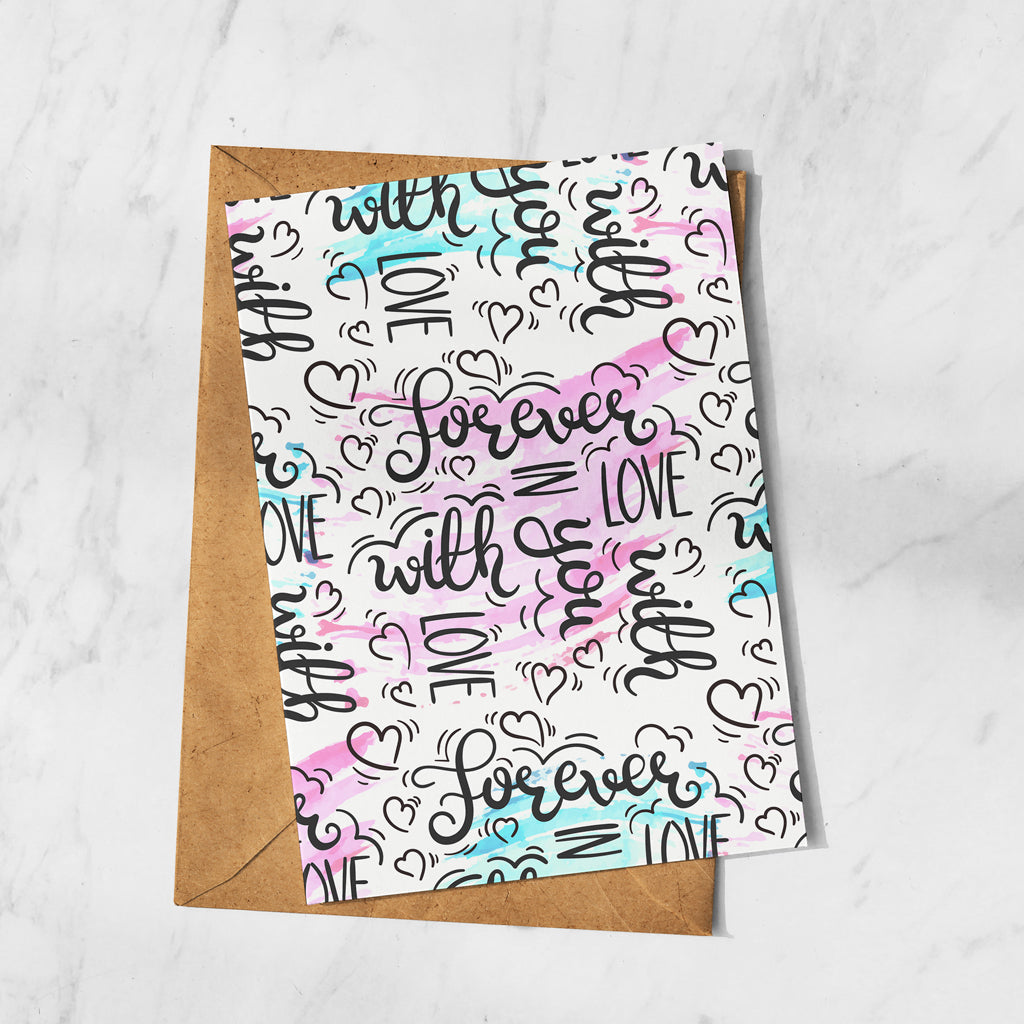 with you
with
with
LOVE
forever
IN LOVE
OVE
with you
with
LOVE
with
forever
IN LOVE
OVE